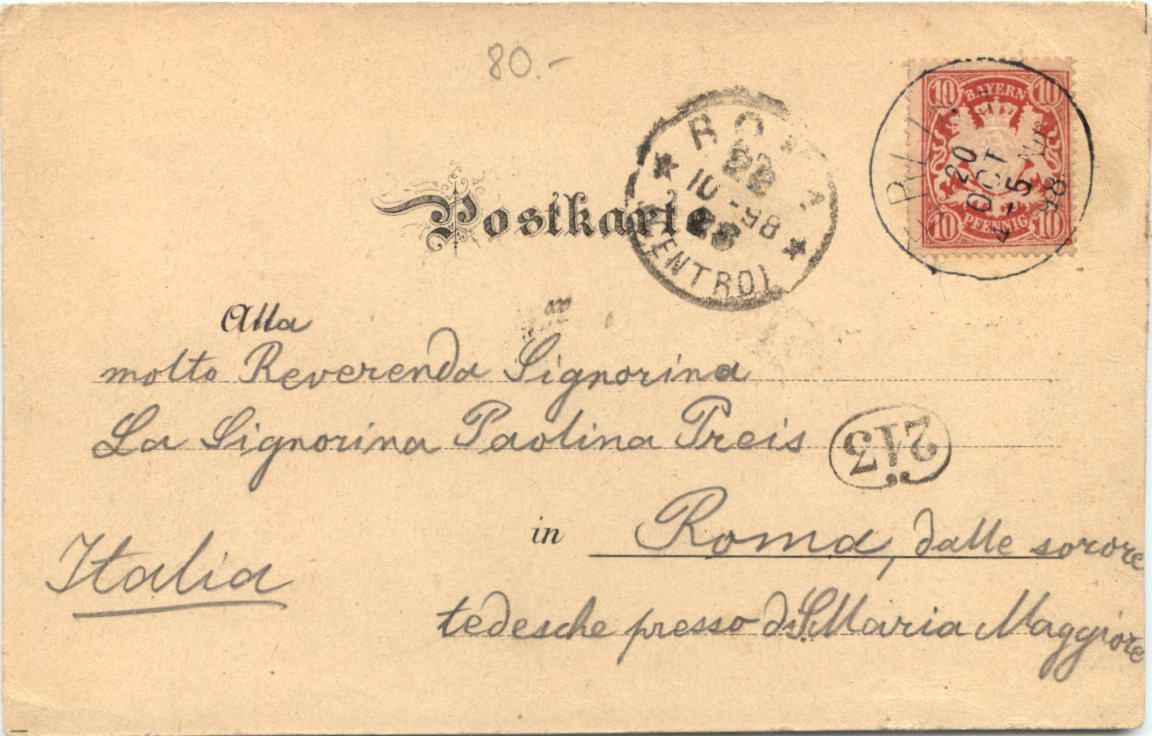 80.-
10 BAYERN 10
10 PFENNIG 10
20
OCT
98
ROMA
22
10-98
CENTRO
Postkarte
Alla
molto Reverenda Signorina
La Signorina Paolina Preis
243
in Roma, dalle sorore
Italia
tedesche presso di S. Maria Maggiore